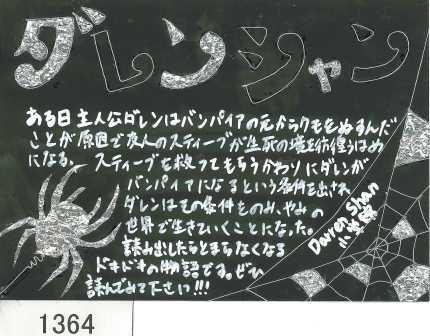 ダレンシャン
ある日主人公ダレンはバンパイアの元からクモをぬすんだ
ことが原因で友人のスティーブが生死の境を彷徨うはめ
になる。スティーブを救ってもらうかわりにダレンが
バンパイアになるという条件を出され
ダレンはその条件をのみ、やみの
世界で生きていくことになった。
読み出したらとまらなくなる
ドキドキの物語です。ぜひ
読んでみて下さい!!!
Darren Shan
小学館
1364